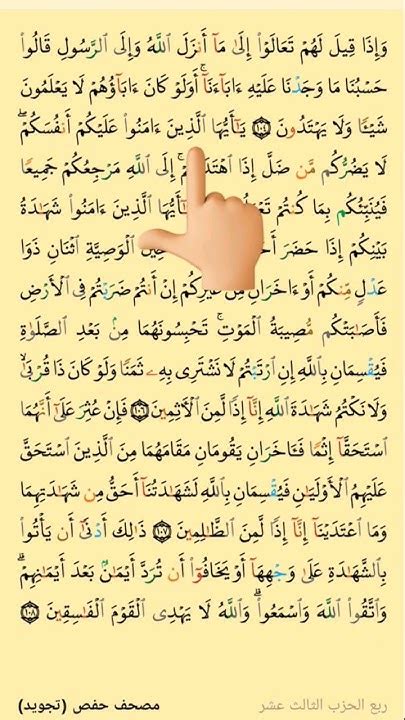 وَإِذَا قِيلَ لَهُمْ تَعَالَوْا۟ إِلَىٰ مَآ أَنزَلَ ٱللَّهُ وَإِلَى ٱلرَّسُولِ قَالُوا۟
حَسْبُنَا مَا وَجَدْنَا عَلَيْهِ ءَابَآءَنَآ ۚ أَوَلَوْ كَانَ ءَابَآؤُهُمْ لَا يَعْلَمُونَ
شَيْـًٔا وَلَا يَهْتَدُونَ ١٠٤ يَـٰٓأَيُّهَا ٱلَّذِينَ ءَامَنُوا۟ عَلَيْكُمْ أَنفُسَكُمْ ۖ
لَا يَضُرُّكُم مَّن ضَلَّ إِذَا ٱهْتَدَيْتُمْ ۚ إِلَى ٱللَّهِ مَرْجِعُكُمْ جَمِيعًا
فَيُنَبِّئُكُم بِمَا كُنتُمْ يَـٰٓأَيُّهَا ٱلَّذِينَ ءَامَنُوا۟ شَهَـٰدَةُ
بَيْنِكُمْ إِذَا حَضَرَ ٱلْوَصِيَّةِ ٱثْنَانِ ذَوَا
عَدْلٍ مِّنكُمْ أَوْ ءَاخَرَانِ مِنْ غَيْرِكُمْ إِنْ أَنتُمْ ضَرَبْتُمْ فِى ٱلْأَرْضِ
فَأَصَـٰبَتْكُم مُّصِيبَةُ ٱلْمَوْتِ ۚ تَحْبِسُونَهُمَا مِنۢ بَعْدِ ٱلصَّلَوٰةِ
فَيُقْسِمَانِ بِٱللَّهِ إِنِ ٱرْتَبْتُمْ لَا نَشْتَرِى بِهِۦ ثَمَنًا وَلَوْ كَانَ ذَا قُرْبَىٰ ۙ
وَلَا نَكْتُمُ شَهَـٰدَةَ ٱللَّهِ إِنَّآ إِذًا لَّمِنَ ٱلْـَٔاثِمِينَ ١٠٦ فَإِنْ عُثِرَ عَلَىٰٓ أَنَّهُمَا
ٱسْتَحَقَّآ إِثْمًا فَـَٔاخَرَانِ يَقُومَانِ مَقَامَهُمَا مِنَ ٱلَّذِينَ ٱسْتَحَقَّ
عَلَيْهِمُ ٱلْأَوْلَيَـٰنِ فَيُقْسِمَانِ بِٱللَّهِ لَشَهَـٰدَتُنَآ أَحَقُّ مِن شَهَـٰدَتِهِمَا
وَمَا ٱعْتَدَيْنَآ إِنَّآ إِذًا لَّمِنَ ٱلظَّـٰلِمِينَ ١٠٧ ذَٰلِكَ أَدْنَىٰٓ أَن يَأْتُوا۟
بِٱلشَّهَـٰدَةِ عَلَىٰ وَجْهِهَآ أَوْ يَخَافُوٓا۟ أَن تُرَدَّ أَيْمَـٰنٌۢ بَعْدَ أَيْمَـٰنِهِمْ ۗ
وَٱتَّقُوا۟ ٱللَّهَ وَٱسْمَعُوا۟ ۗ وَٱللَّهُ لَا يَهْدِى ٱلْقَوْمَ ٱلْفَـٰسِقِينَ ١٠٨
ربع الحزب الثالث عشر
مصحف حفص (تجويد)